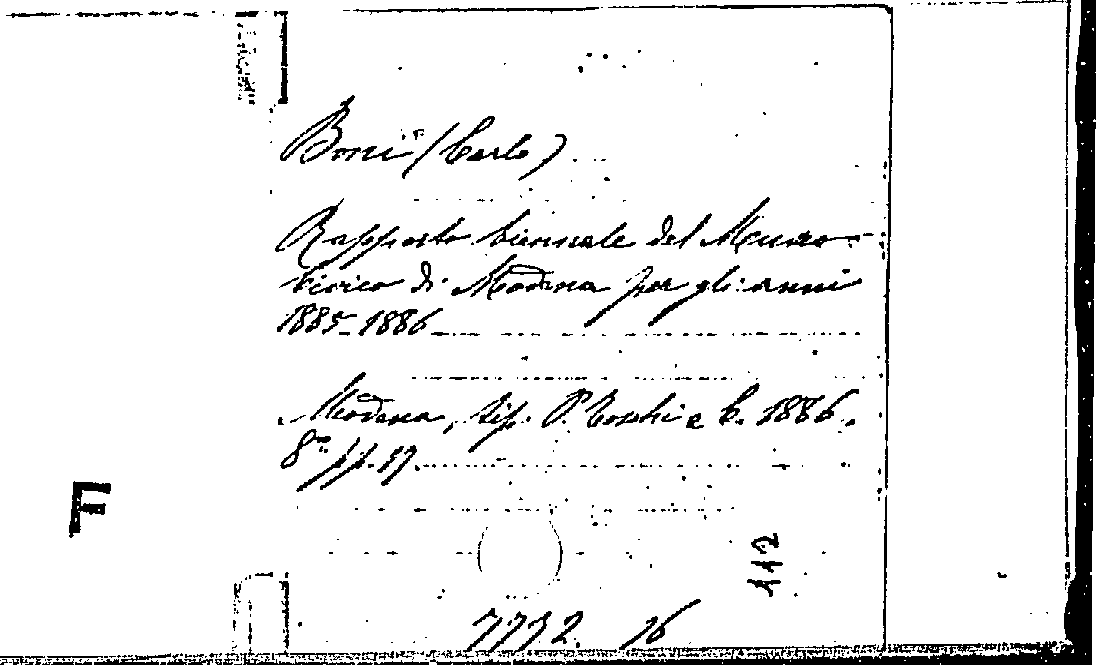 Boni (Carlo)
Rapporto biennale del Museo
Civico di Modena per gli anni
1885-1886
Modena, tip. P. Toschi e C. 1886.
8º pp. 17.
F
112
7732 16